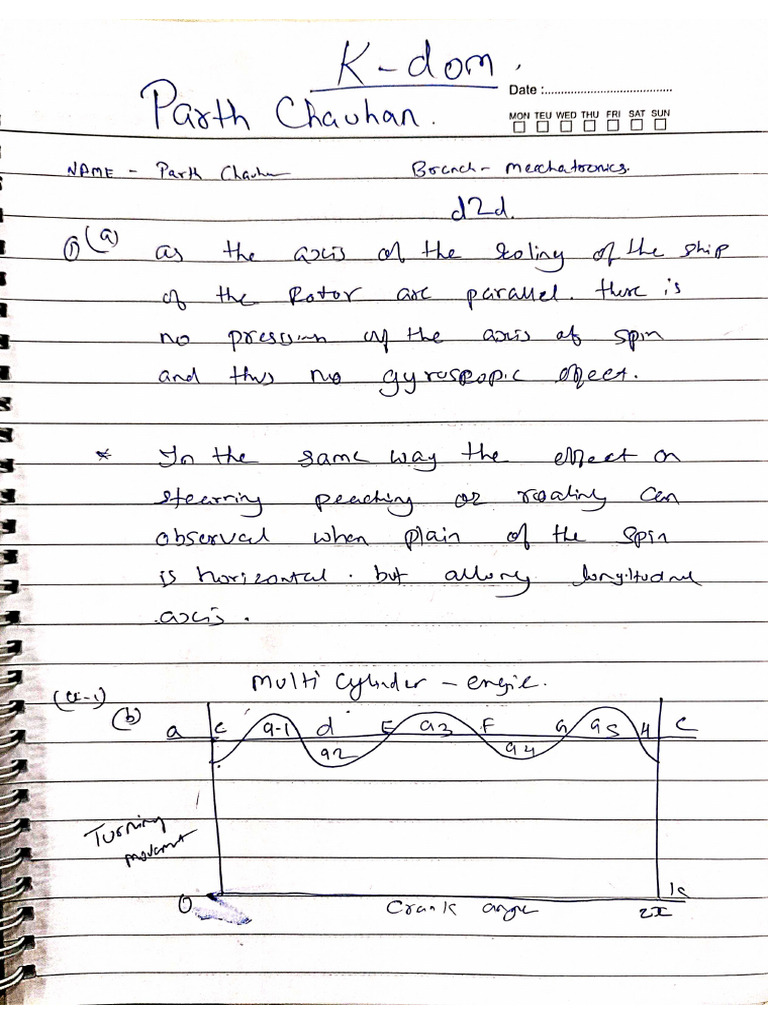 K-dom.
Date :
Parth Chauhan.
MON TEU WED THU FRI SAT SUN
NAME - Parth Chauhan Branch - Mechatronics.
d2d.
1) (a) as the axis of the roling of the ship
of the Rotor are parallel. there is
no pression of the axis of spin
and thus no gyroscopic effect.
* In the same way the effect on
stearring peaching or roaling can
observal when plain of the spin
is horizontal. but allong longitudnal
axis.
Multi Cylinder - engie.
(Q-1)
(b) a C a-1 d E a3 F G a5 H C
a2 a4
Turning
movment
O Crank angle 2x